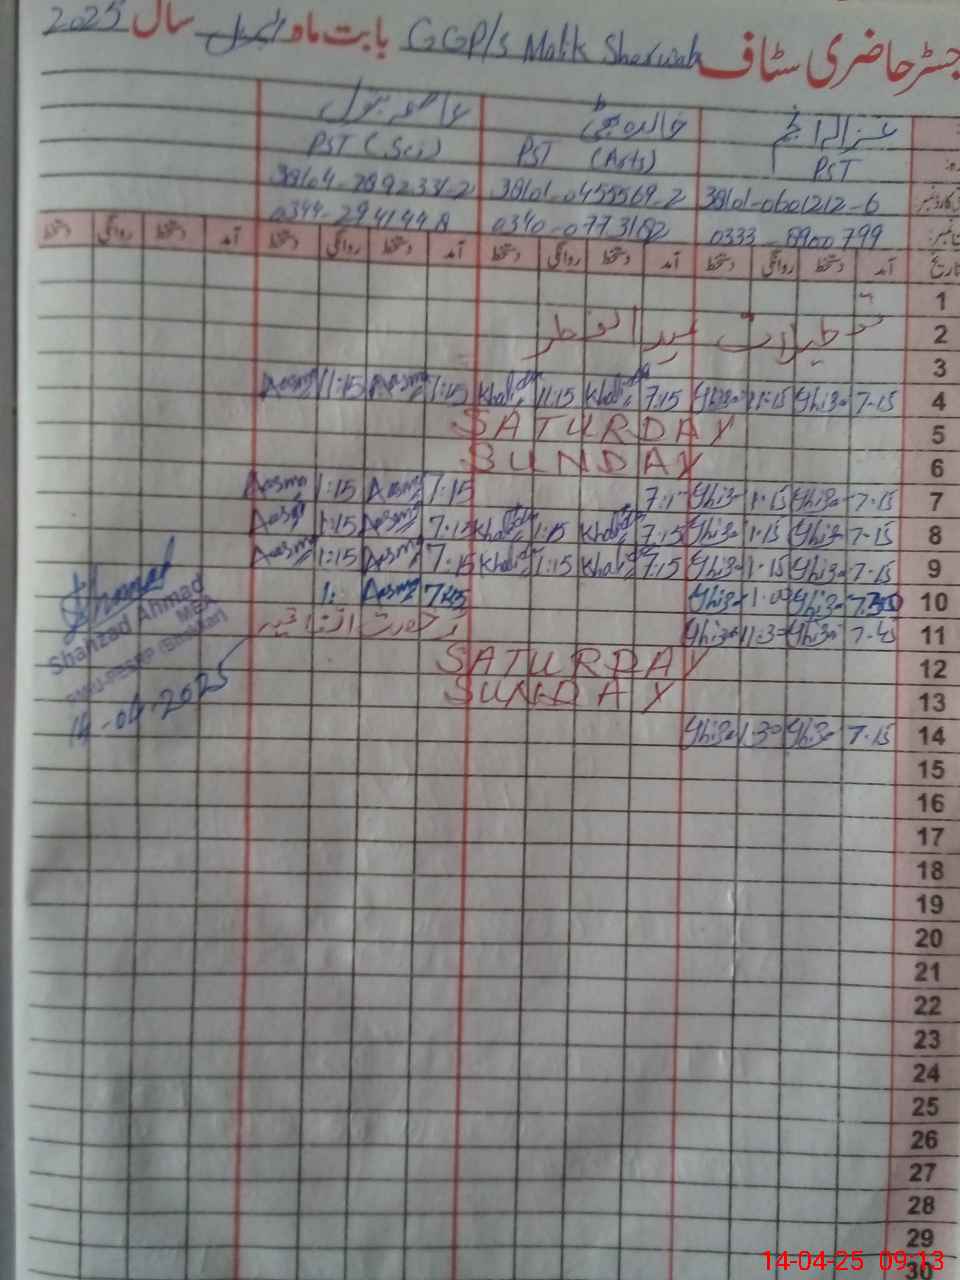 جسٹر حاضری سٹاف GGP/s Malik Sherwah بابت ماہ اپریل سال 2025
PST PST (Arts) PST (Sci)
38101-0601212-6 38101-0455569-2
0333-8900799 0340-0773182 0344-2941948
تاریخ آمد دستخط روانگی دستخط آمد دستخط روانگی دستخط آمد دستخط روانگی دستخط آمد دستخط روانگی دستخط
1
2 تعطیلات عید الفطر
3
4 7-15 Ghiza 1-15 Ghiza 7:15 Khalida 11:15 Khalida 7:15 Aasma 11:15 Aasma
5 SATURDAY
6 SUNDAY
7 7-15 Ghiza 1-15 Ghiza 7:1 7:15 Aasma 1:15 Aasma
8 7-15 Ghiza 1-15 Ghiza 7:15 Khalida 1:15 Khalida 7:15 Aasma 1:15 Aasma
9 7-15 Ghiza 1-15 Ghiza 7:15 Khalida 1:15 Khalida 7:15 Aasma 1:15 Aasma
10 Ghiza 1:00 Ghiza Aasma 1:
11 7-45 Ghiza 11:30 Ghiza رخصت اتفاقیہ
12 SATURDAY
13 SUNDAY
14 7-15 Ghiza 1:30 Ghiza
15
16
17
18
19
20
21
22
23
24
25
26
27
28
29
30
Shahzad Ahmad
MEA
14-04-2025
14-04-25 09:13